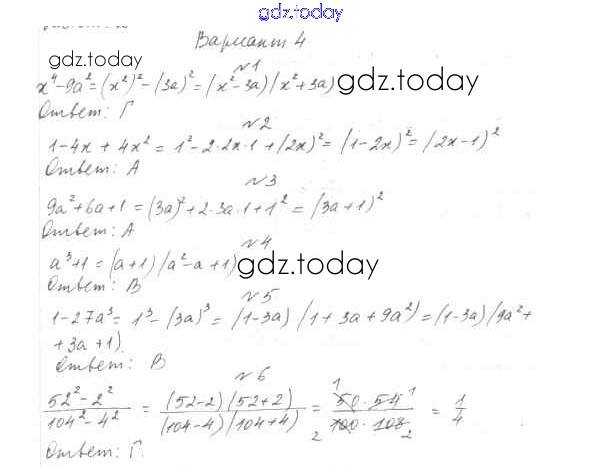 gdz.today
Вариант 4
gdz.today
№1
x⁴-9a²=(x²)²-(3a)²=(x²-3a)(x²+3a) gdz.today
Ответ: Г
№2
1-4x+4x²=1²-2·2x·1+(2x)²=(1-2x)²=(2x-1)²
Ответ: А
№3
9a²+6a+1=(3a)²+2·3a·1+1²=(3a+1)²
Ответ: А
№4
a³+1=(a+1)(a²-a+1) gdz.today
Ответ: В
№5
1-27a³=1³-(3a)³=(1-3a)(1+3a+9a²)=(1-3a)(9a²+
+3a+1).
Ответ: В
№6
(52²-2²)/(104²-4²) = ((52-2)(52+2))/((104-4)(104+4)) = (50·54)/(100·108) = 1/4
Ответ: Г.